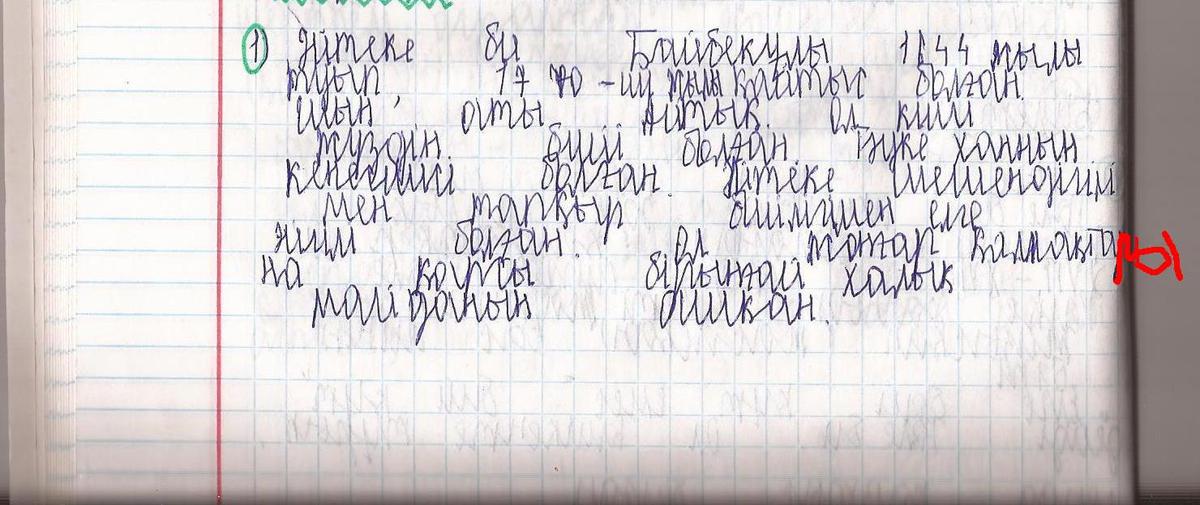 1) Әйтеке би Байбекұлы 1644 жылы
туып, 1700-ші жылы қайтыс болған.
Шын аты Айтық. Ол кіші
жүздің биі болған. Тәуке ханның
кеңесшісі болған. Әйтеке шешендігі
мен тапқыр
болған. Ол жоңғар қалмақтары
на қарсы бірыңғай халық
майданын ашқан.